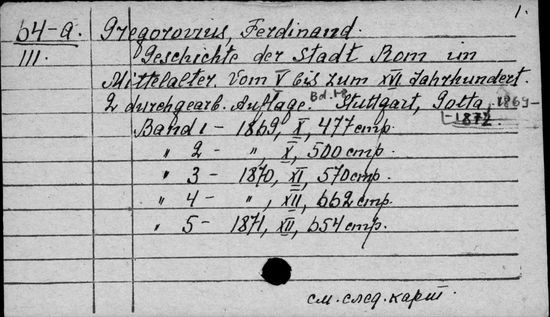 1.
64-а. Gregorovius, Ferdinand.
III. Geschichte der Stadt Rom im
Mittelalter. Vom V bis zum XVI Jahrhundert.
2 durchgearb. Auflage. Stuttgart, Cotta, 1869-
-1872
Band 1 - 1869, X, 477 стр.
" 2 - ", X, 500 стр.
" 3 - 1870, XI, 570 стр.
" 4 - ", XII, 662 стр.
" 5 - 1871, XII, 654 стр.
см. след. карт.